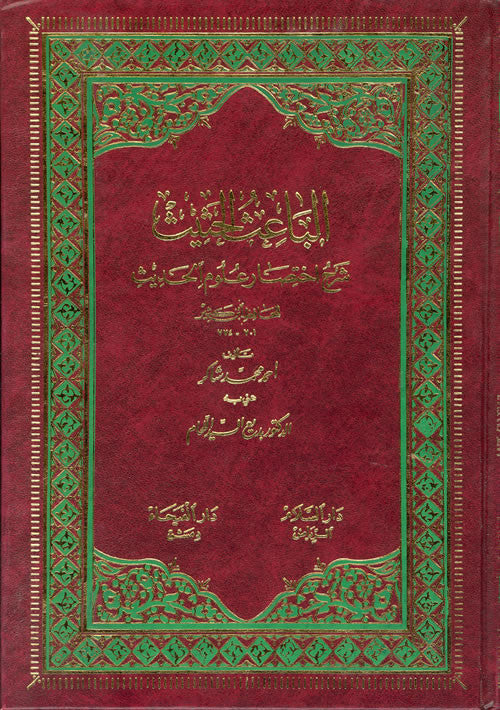 الباعث الحثيث
شرح اختصار علوم الحديث
للحافظ ابن كثير
٧٠١ - ٧٧٤
تأليف
أحمد محمد شاكر
عني به
الدكتور بديع السيد اللحام
دار السلام
الرياض
دار الفيحاء
دمشق